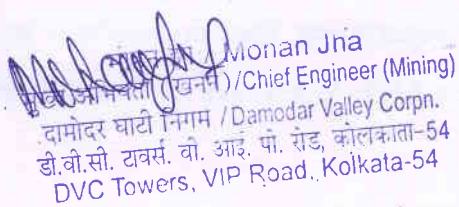 Monan Jha
(खनन)/Chief Engineer (Mining)
दामोदर घाटी निगम /Damodar Valley Corpn.
डी.वी.सी. टावर्स. वी. आई. पी. रोड, कोलकाता-54
DVC Towers, VIP Road, Kolkata-54